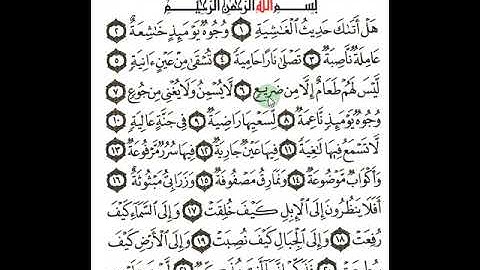 بِسْمِ اللَّهِ الرَّحْمَٰنِ الرَّحِيمِ
هَلْ أَتَىٰكَ حَدِيثُ الْغَٰشِيَةِ ١ وُجُوهٌ يَوْمَئِذٍ خَٰشِعَةٌ ٢
عَامِلَةٌ نَّاصِبَةٌ ٣ تَصْلَىٰ نَارًا حَامِيَةً ٤ تُسْقَىٰ مِنْ عَيْنٍ ءَانِيَةٍ ٥
لَّيْسَ لَهُمْ طَعَامٌ إِلَّا مِن ضَرِيعٍ ٦ لَّا يُسْمِنُ وَلَا يُغْنِي مِن جُوعٍ ٧
وُجُوهٌ يَوْمَئِذٍ نَّاعِمَةٌ ٨ لِّسَعْيِهَا رَاضِيَةٌ ٩ فِي جَنَّةٍ عَالِيَةٍ ١٠
لَّا تَسْمَعُ فِيهَا لَٰغِيَةً ١١ فِيهَا عَيْنٌ جَارِيَةٌ ١٢ فِيهَا سُرُرٌ مَّرْفُوعَةٌ ١٣
وَأَكْوَابٌ مَّوْضُوعَةٌ ١٤ وَنَمَارِقُ مَصْفُوفَةٌ ١٥ وَزَرَابِيُّ مَبْثُوثَةٌ ١٦
أَفَلَا يَنظُرُونَ إِلَى الْإِبِلِ كَيْفَ خُلِقَتْ ١٧ وَإِلَى السَّمَاءِ كَيْفَ
رُفِعَتْ ١٨ وَإِلَى الْجِبَالِ كَيْفَ نُصِبَتْ ١٩ وَإِلَى الْأَرْضِ كَيْفَ